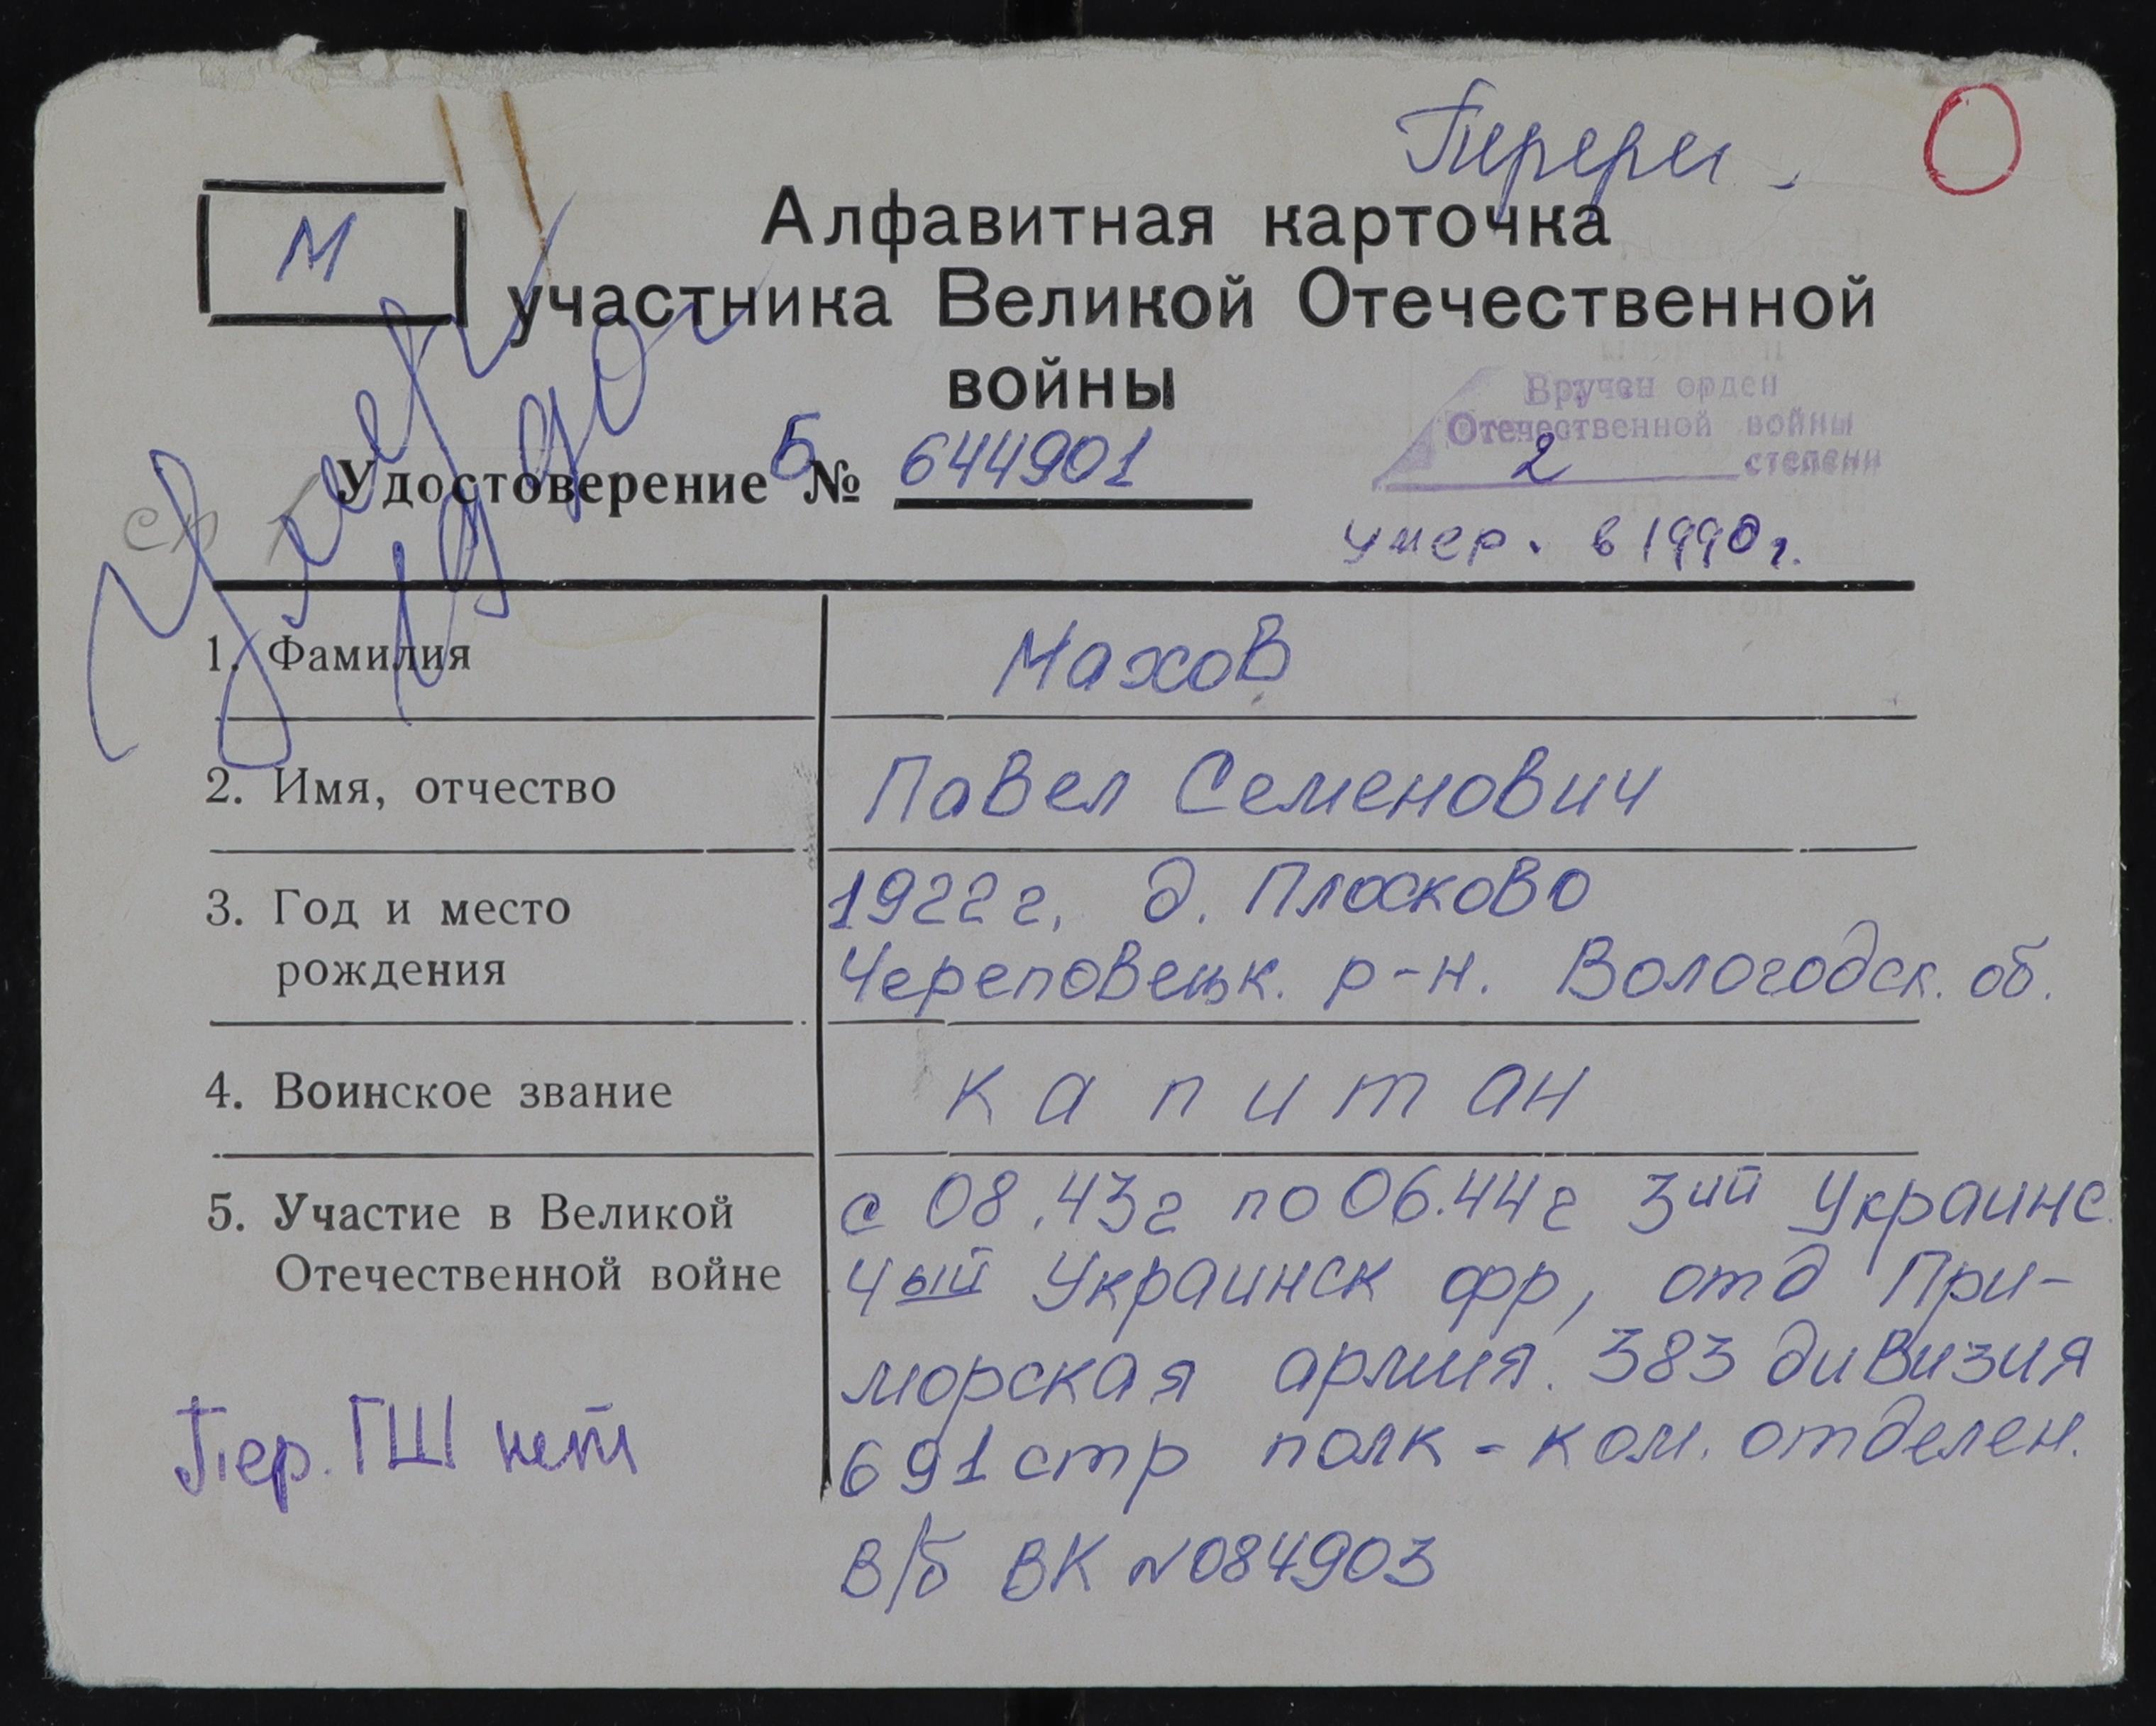 Перерег.
М
Алфавитная карточка
участника Великой Отечественной
войны
Вручен орден
Отечественной войны
2 степени
Удостоверение Б № 644901
умер. в 1990г.
1. Фамилия
Махов
2. Имя, отчество
Павел Семенович
3. Год и место
рождения
1922 г, д. Плосково
Череповецк. р-н. Вологодск. об.
4. Воинское звание
капитан
5. Участие в Великой
Отечественной войне
с 08.43г по 06.44г 3ий Украинс.
4ый Украинск фр, отд При-
морская армия. 383 дивизия
691 стр полк - ком. отделен.
В/б ВК №084903
Пер. ГШ нет